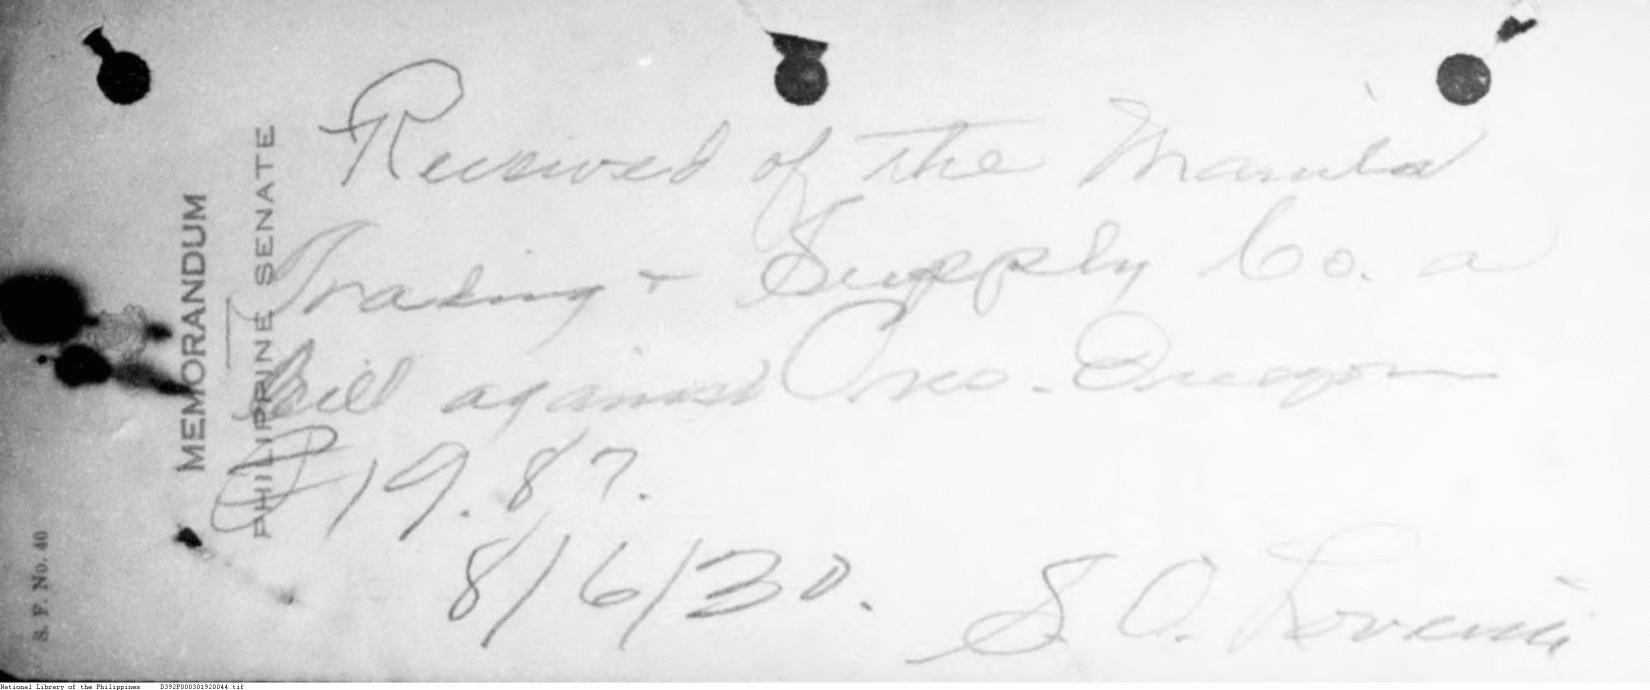 MEMORANDUM
PHILIPPINE SENATE
S. F. No. 40
Received of the Manila
Trading + Supply Co. a
bill against
₱19.87.
8/6/30. S. O.
National Library of the Philippines D392P000301920044.tif